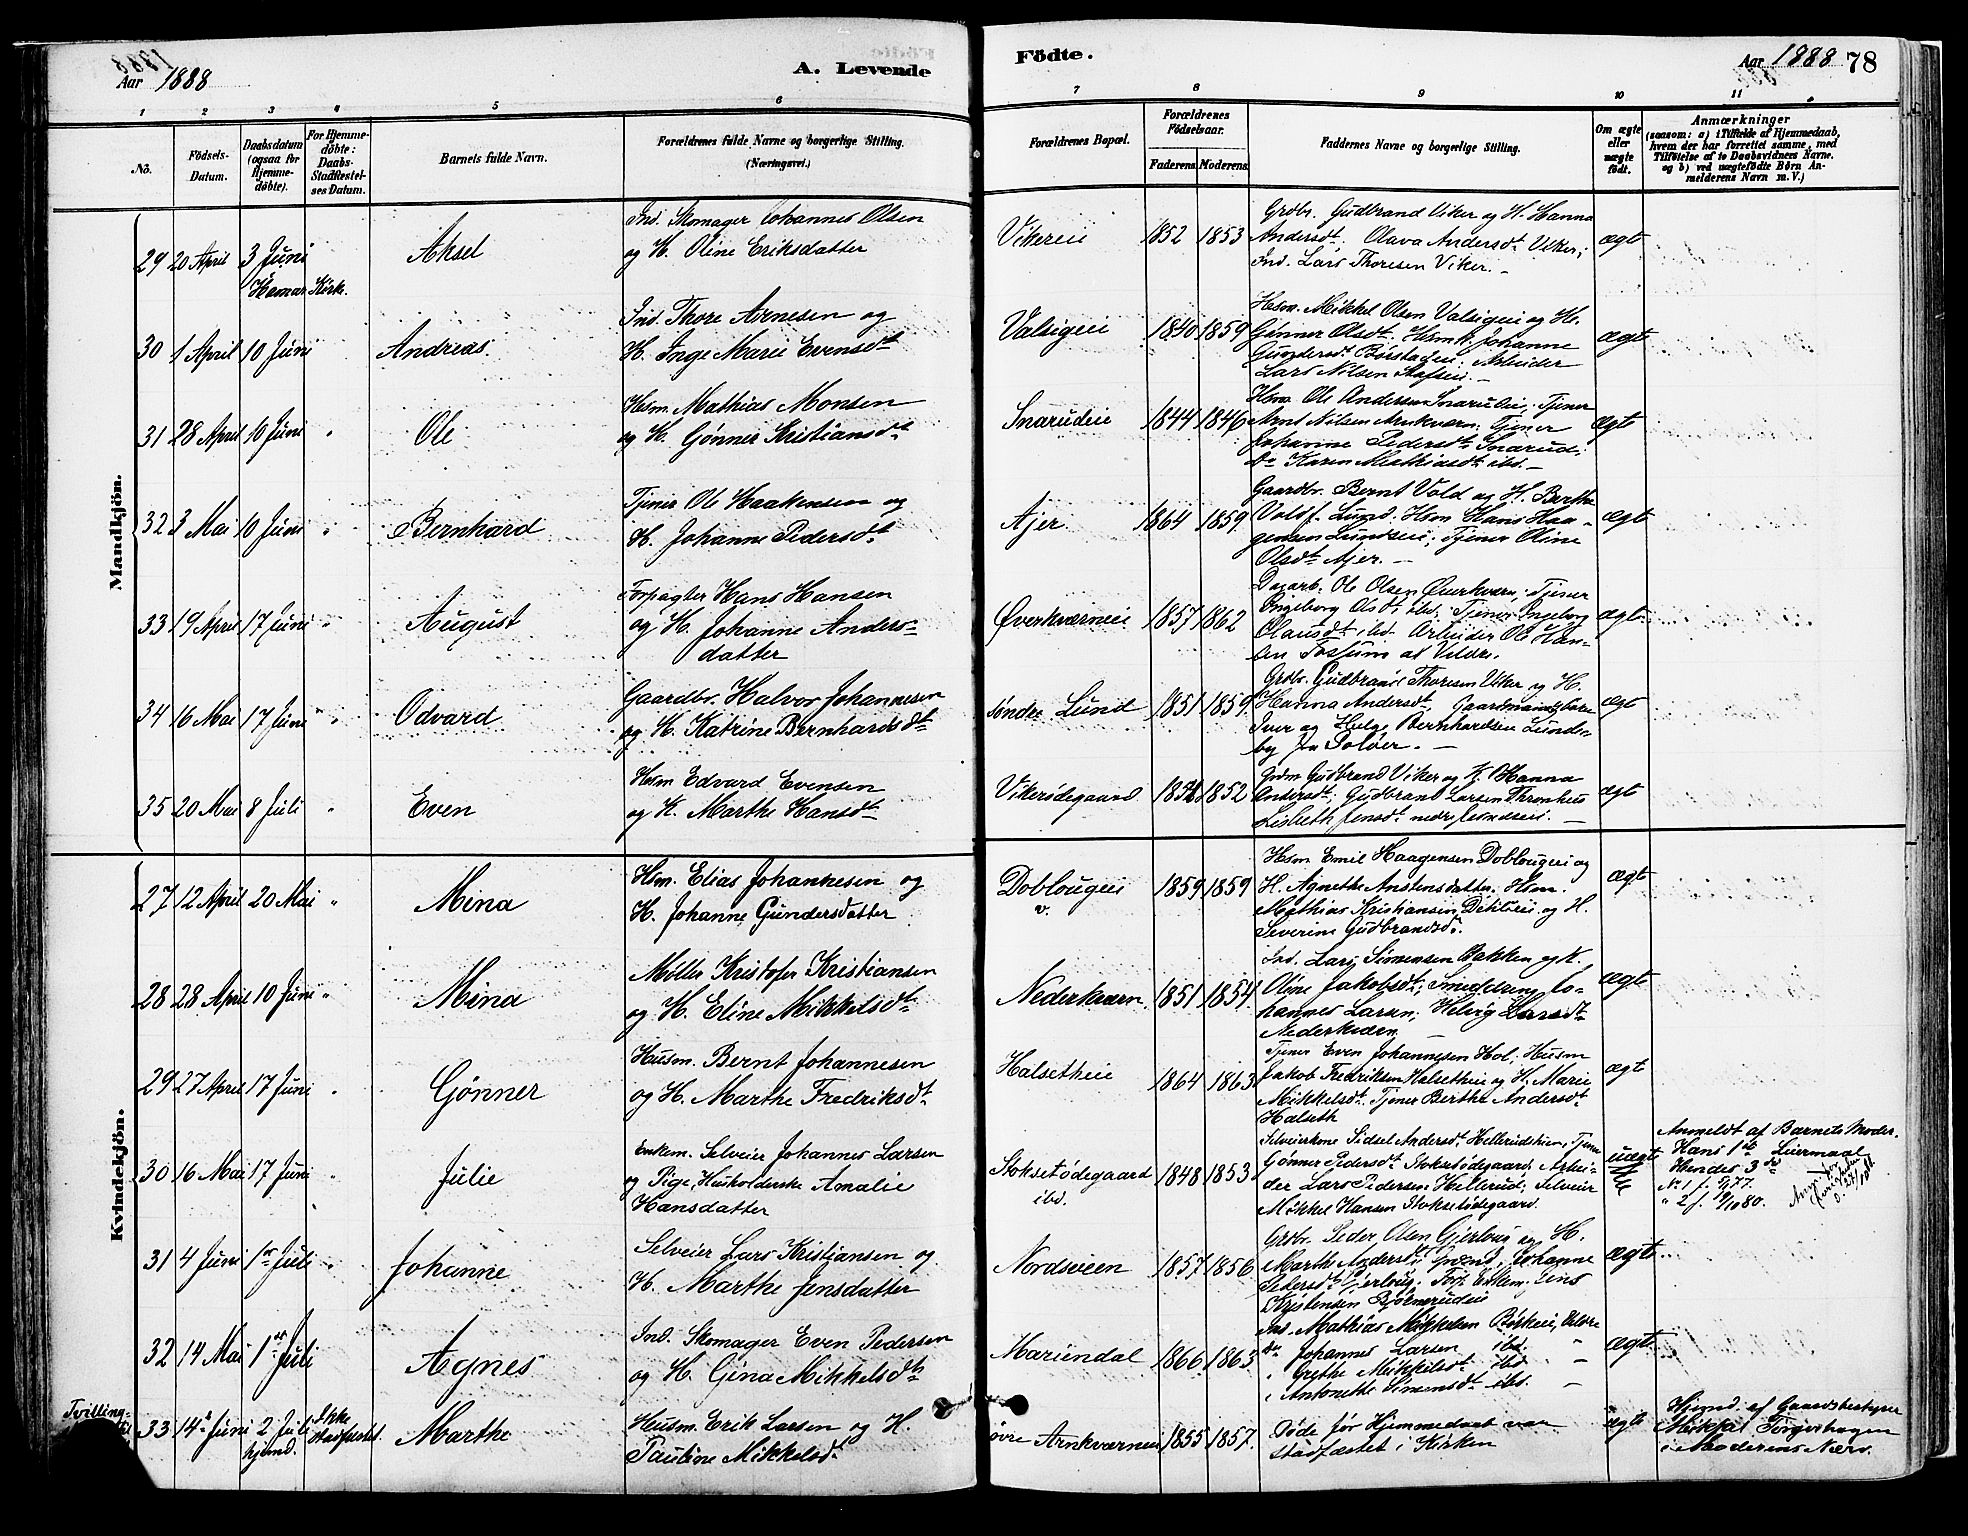 Aar 1888
A. Levende
Födte.
Aar 1888
78
1 2 3 4 5 6 7 8 9 10 11
No.
Födsels-Datum.
Daabsdatum (ogsaa for Hjemme-døbte).
For Hjemme-døbte: Daabs-Stadfæstel-ses Datum.
Barnets fulde Navn.
Forældrenes fulde Navne og borgerlige Stilling. (Næringsvei.)
Forældrenes Bopæl.
Forældrenes Födselsaar.
Faderens Moderens
Faddernes Navne og borgerlige Stilling.
Om ægte eller uægte født.
Anmærkninger
(saasom: a) i Tilfælde af Hjemmedaab, hvem der har forrettet samme, med Tilföielse af to Daabsvidners Navne. og b) ved uægtefödte Börn An-melderens Navn m. V.)
Mandkjön.
29 20 April 3 Juni Hamar Kirke. Aksel
Ind. Skomager Johannes Olsen
og H. Oline Eriksdatter
Vikereie 1852 1853
Grdbr. Gudbrand Viker og H. Hanna
Andersdt. Olava Andersdt Viker;
Ind. Lars Thoresen Viker. —
ægt
30 1 April 10 Juni Andreas.
Ind. Thore Arnesen og
H. Inge Marie Evensdt
Valsigeie 1840 1859
Hsm. Mikkel Olsen Valsigeie og H.
Gønner Olsdt. Hsmk. Johanne
Gundersdt Børstadeie. Arbeider
Lars Nilsen
ægt
31 28 April 10 Juni " Ole
Hsm. Mathias Monsen
og H. Gønner Kristiansdt
Snarudeie 1844 1846
Hsm. Ole Andersen Snarudeie; Tjener
Arnt Nilsen Arnkværn. Tjener
Johanne Pedersdt Snarud;
Do Karen Mathiasdt ibd. —
ægt
32 3 Mai 10 Juni " Bernhard
Tjener Ole Haakensen og
H. Johanne Pedersdt
Ajer 1864 1859
Gaardbr. Bernt Vold og H. Berthe
Vold f. Lund. Hsm Hans Haa-
gensen Lundseie; Tjener Oline
Olsdt Ajer. —
ægt
33 19 April 17 Juni " August
Forpagter Hans Hansen
og H. Johanne Anders-
datter
Øverkværneie 1857 1862
Dagarb. Ole Olsen Øverkværn; Tjener
Ingeborg Olsdt ibd. Tjener Ingeborg
Olausdt ibd. Arbeider Ole Han-
sen Fossum af Veldre.
ægt.
34 16 Mai 17 Juni " Odvard
Gaardbr. Halvor Johannesen
og H. Katrine Bernhardsdt
søndre Lund 1851 1859
Grdbr. Gudbrand Thoresen Viker og H.
Hanna Andersdt, Gaardmandsbarn
Iver og Helge Bernhardsen Lunde-
by fra Soløer. —
ægt
35 20 Mai 8 Juli " Even
Hsm Edvard Evensen
og H. Marthe Hansdt
Vikerødegaard 1852
Grdm Gudbrand Viker og H. Hanna
Andersdt; Gudbrand Larsen Thronhus
Lisbeth Jensdt nedre —
ægt
Kvindekjön.
27 12 April 20 Mai " Mina
Hsm. Elias Johannesen og
H. Johanne Gundersdatter
Doblougeie v. 1859 1859
Hsm Emil Haagensen Doblougeie og
H. Agnethe Anstensdatter. Hsm.
Mathias Kristiansen og H.
Severine Gudbrandsd.
ægt
28 28 April 10 Juni " Mina
Møller Kristofer Kristiansen
og H. Eline Mikkelsdt
Nederkværn 1851 1854
Ind. Lars Simensen Bakken og H.
Oline Jakobsdt; Smedsvend Jo-
hannes Larsen; Helvig Larsdt
Nederkværn —
ægt
29 27 April 17 Juni " Gønner
Husm. Bernt Johannesen
og H. Marthe Fredriksdt.
Halsetheie 1864 1863
Tjener Even Johannesen Hol; Husm
Jakob Fredriksen Halsetheie og H. Marie
Mikkelsdt. Tjener Berthe Andersdt
Halseth
ægt
30 16 Mai 17 Juni " Julie
Enkem. Selveier Johannes Larsen
og Pige, Husholderske Amalie
Hansdatter
Stoksetødegaard ibd. 1848 1853
Selveierkone Sidsel Andersdt. Hellerudseie, Tjener
Gønner Pedersdt Stoksetødegaard. Arbei-
der Lars Pedersen Hellerud; Selveier
Mikkel Hansen Stoksetødegaard.
uægte
Anmeldt af Barnets Moder.
Hans 1ste Leiermaal
Hendes 3die
No 1 f. 77.
" 2 f. 80.
31 4 Juni 1ste Juli " Johanne
Selveier Lars Kristiansen og
H. Marthe Jensdatter
Nordsveen 1857 1856
Grdbr. Peder Olsen Gjerlaug og H.
Marthe Andersdt; Johanne
Pedersdt Gjerlaug. Enkem. Jens
Kristensen Bjørnerudeie
ægt.
32 14 Mai 1ste Juli Agnes
Ind. Skomager Even Pedersen
og H. Gina Mikkelsdt
Mariendal 1866 1863
Ind. Mathias Mikkelsen Veldre
Do Johannes Larsen ibd. "
" Grethe Mikkelsdt ibd —
" Antonette Simensdt ibd. —
ægt.
Tvilling-
33 14de Juni 2 Juli hjemd. Ikke stadfæstet Marthe
Husm. Erik Larsen og H.
Pauline Mikkelsdt
øvre Arnkværneie 1855 1857.
Døde før Hjemmedaab var
stadfæstet i Kirken
ægt
Hjemd. af Gaardsbestyrer
Mikkel Torgershagen
i Moderens Nærv.